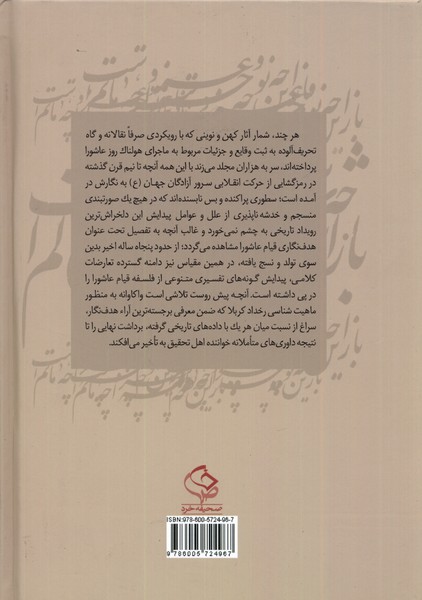 هر چند، شمار آثار کهن و نوینی که با رویکردی صرفاً نقالانه و گاه
تحریف‌آلوده به ثبت وقایع و جزئیات مربوط به ماجرای هولناك روز عاشورا
پرداخته‌اند، سر به هزاران مجلد می‌زند با این همه آنچه تا نیم قرن گذشته
در رمزگشایی از حرکت انقلابی سرور آزادگان جهان (ع) به نگارش در
آمده است؛ سطوری پراکنده و بس نابسنده‌اند که در هیچ یك صورتبندی
منسجم و خدشه ناپذیری از علل و عوامل پیدایش این دلخراش‌ترین
رویداد تاریخی به چشم نمی‌خورد و غالب آنچه به تفصیل تحت عنوان
هدف‌نگاری قیام عاشورا مشاهده می‌گردد؛ از حدود پنجاه ساله اخیر بدین
سوی تولد و نسج یافته، در همین مقیاس نیز دامنه گسترده تعارضات
کلامی، پیدایش گونه‌های تفسیری متنوعی از فلسفه قیام عاشورا را
در پی داشته است. آنچه پیش روست تلاشی است واکاوانه به منظور
ماهیت شناسی رخداد کربلا که ضمن معرفی برجسته‌ترین آراء هدف‌نگار،
سراغ از نسبت میان هر یك با داده‌های تاریخی گرفته، برداشت نهایی را تا
نتیجه داوری‌های متأملانه خواننده اهل تحقیق به تأخیر می‌افکند.
صحیفه خرد
ISBN:978-600-5724-96-7
9786005724967